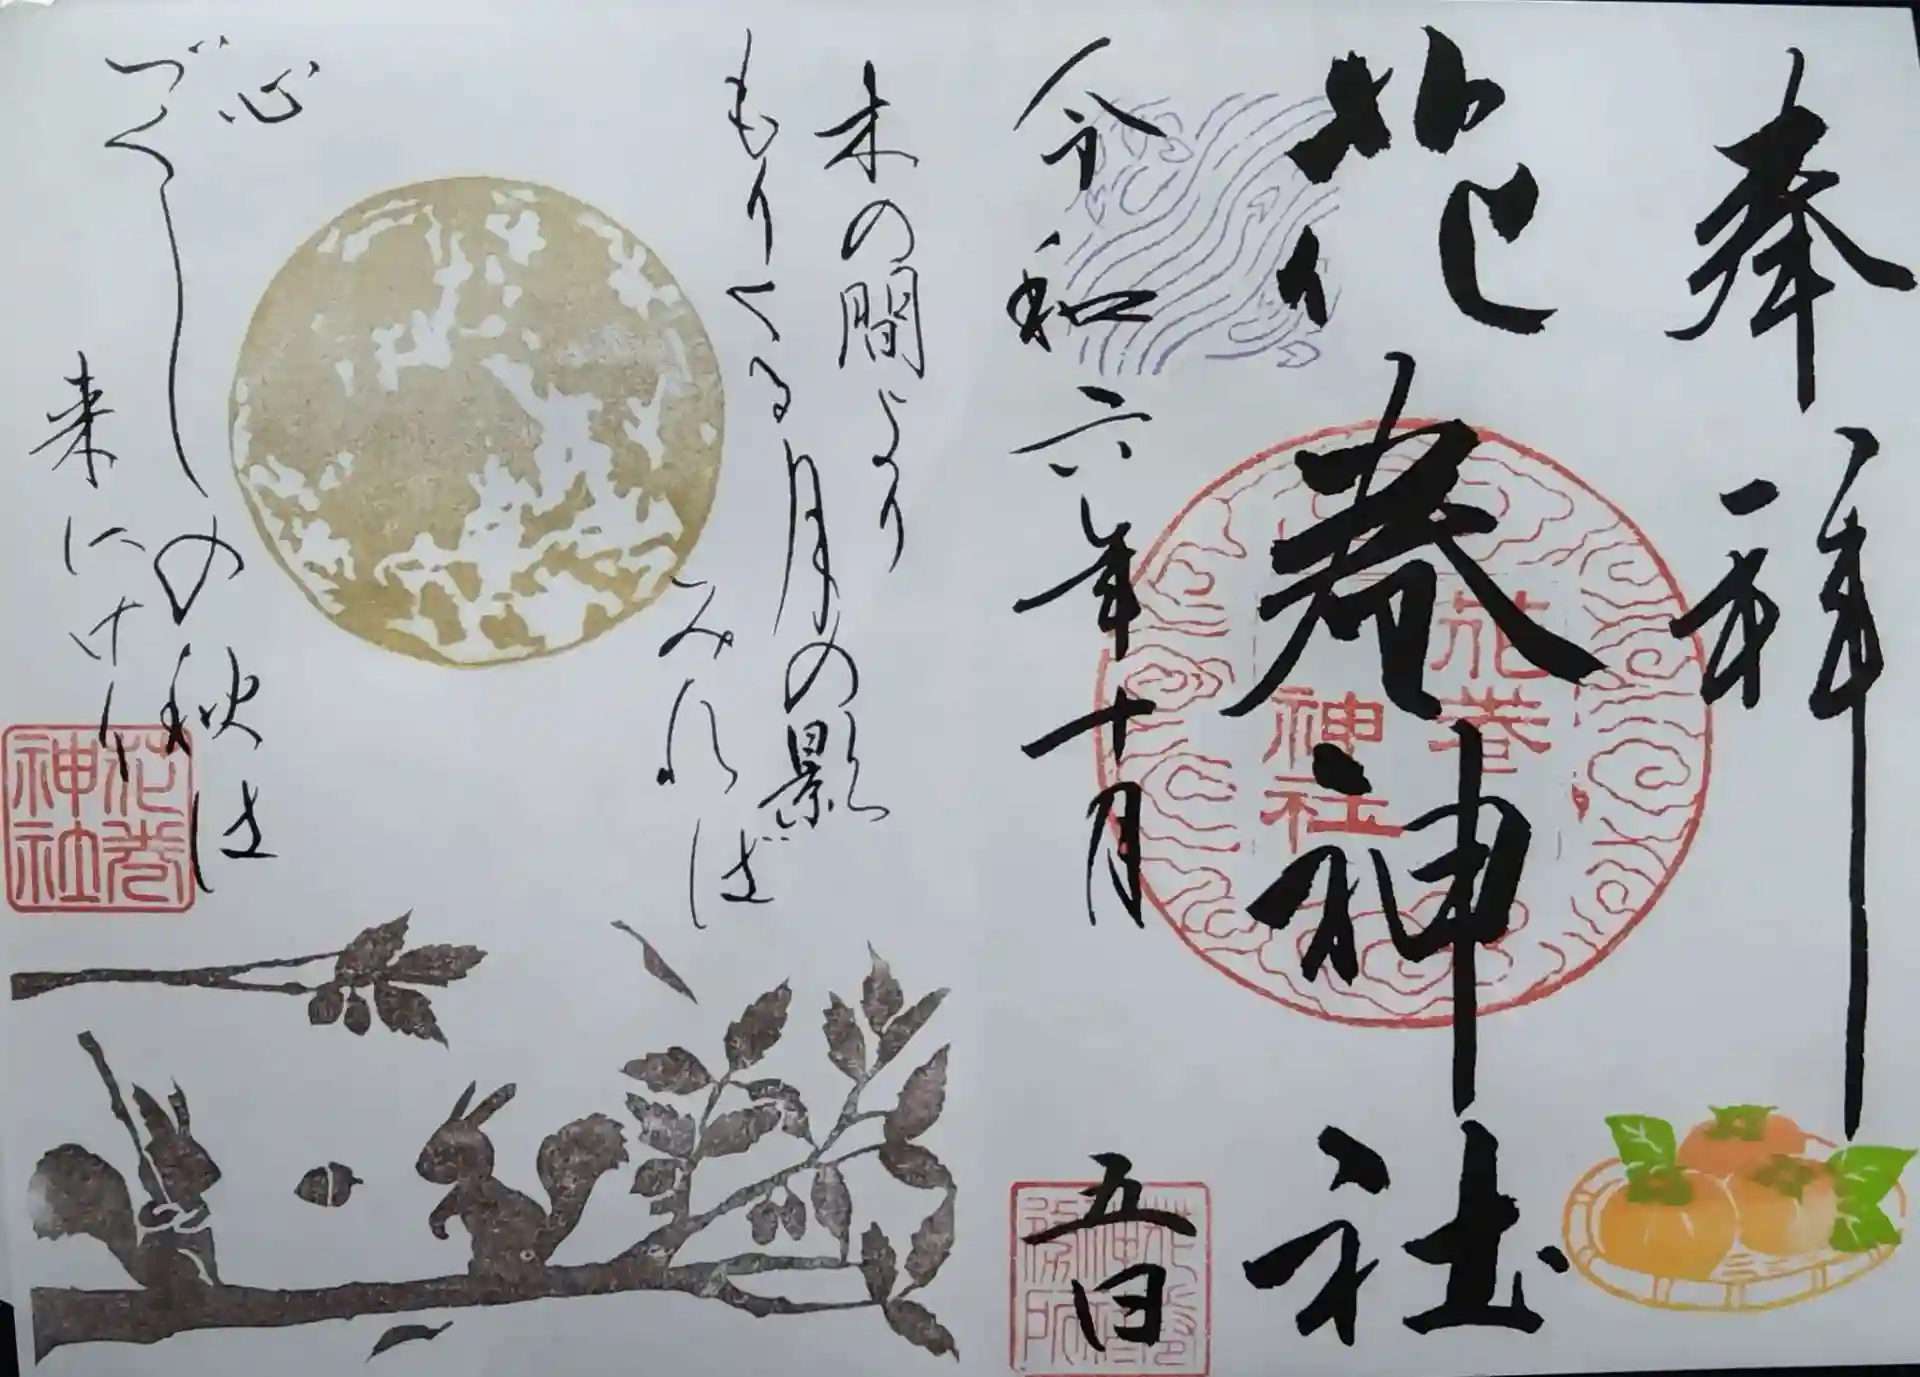 奉拝
花巻神社
令和六年十月五日
花巻
神社
花巻
神社
木の間より
もりくる月の影
みれば
心
づくしの秋は
来にけり
花巻
神社